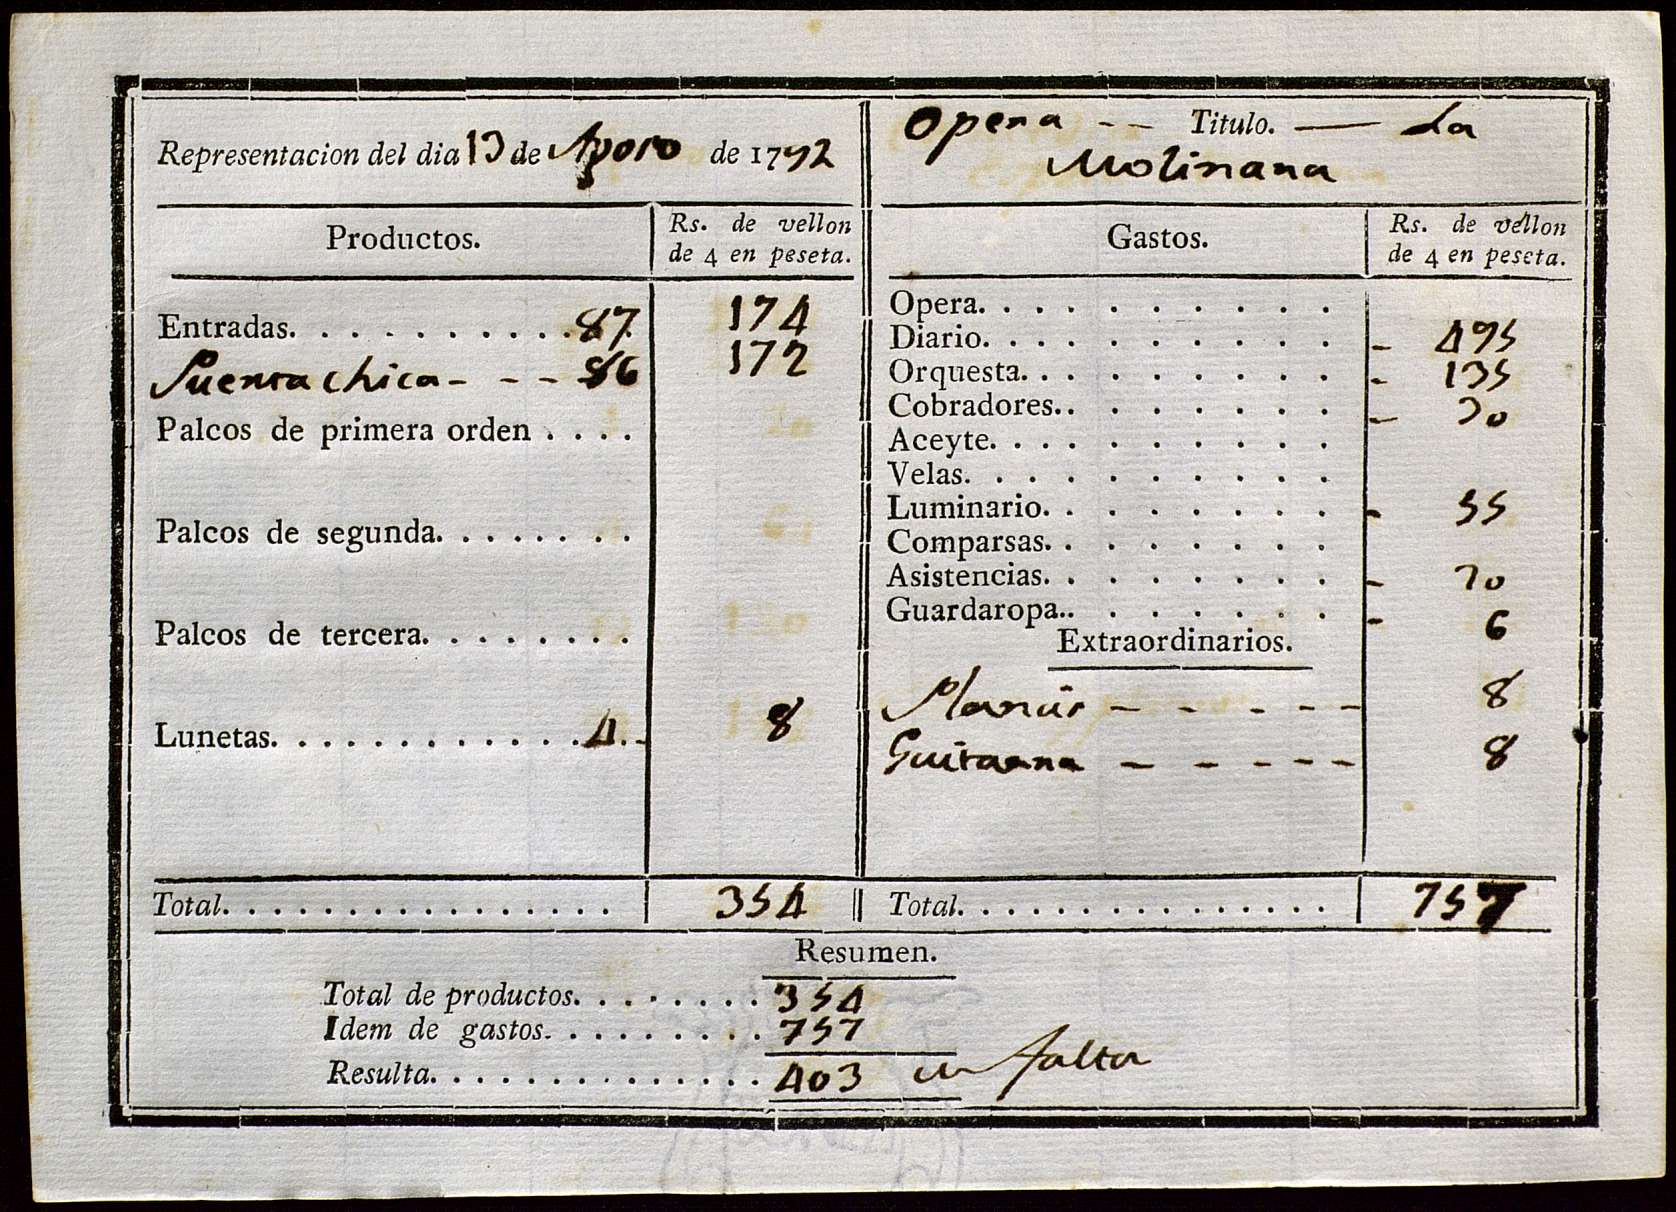 Representacion del dia 13 de Agosto de 1792
Opera -- Titulo. — La
Molinara
Productos.
Rs. de vellon
de 4 en peseta.
Entradas. . . . . . . . . . 87. 174
Puerta chica - - - 86 172
Palcos de primera orden . . . .
Palcos de segunda. . . . . . . .
Palcos de tercera. . . . . . . .
Lunetas. . . . . . . . . . . . . 4. - 8
Total. . . . . . . . . . . . . . . . 354
Gastos.
Rs. de vellon
de 4 en peseta.
Opera. . . . . . . . . .
Diario. . . . . . . . . . - 495
Orquesta. . . . . . . . . - 135
Cobradores.. . . . . . . - 30
Aceyte. . . . . . . . . .
Velas. . . . . . . . . . .
Luminario. . . . . . . . - 55
Comparsas. . . . . . . .
Asistencias. . . . . . . . - 20
Guardaropa.. . . . . . . - 6
Extraordinarios.
- - - - - 8
Guitarra - - - - - - 8
Total. . . . . . . . . . . . . . . 757
Resumen.
Total de productos. . . . . . . . 354
Idem de gastos. . . . . . . . . . 757
Resulta. . . . . . . . . . . . . . . 403 en falta